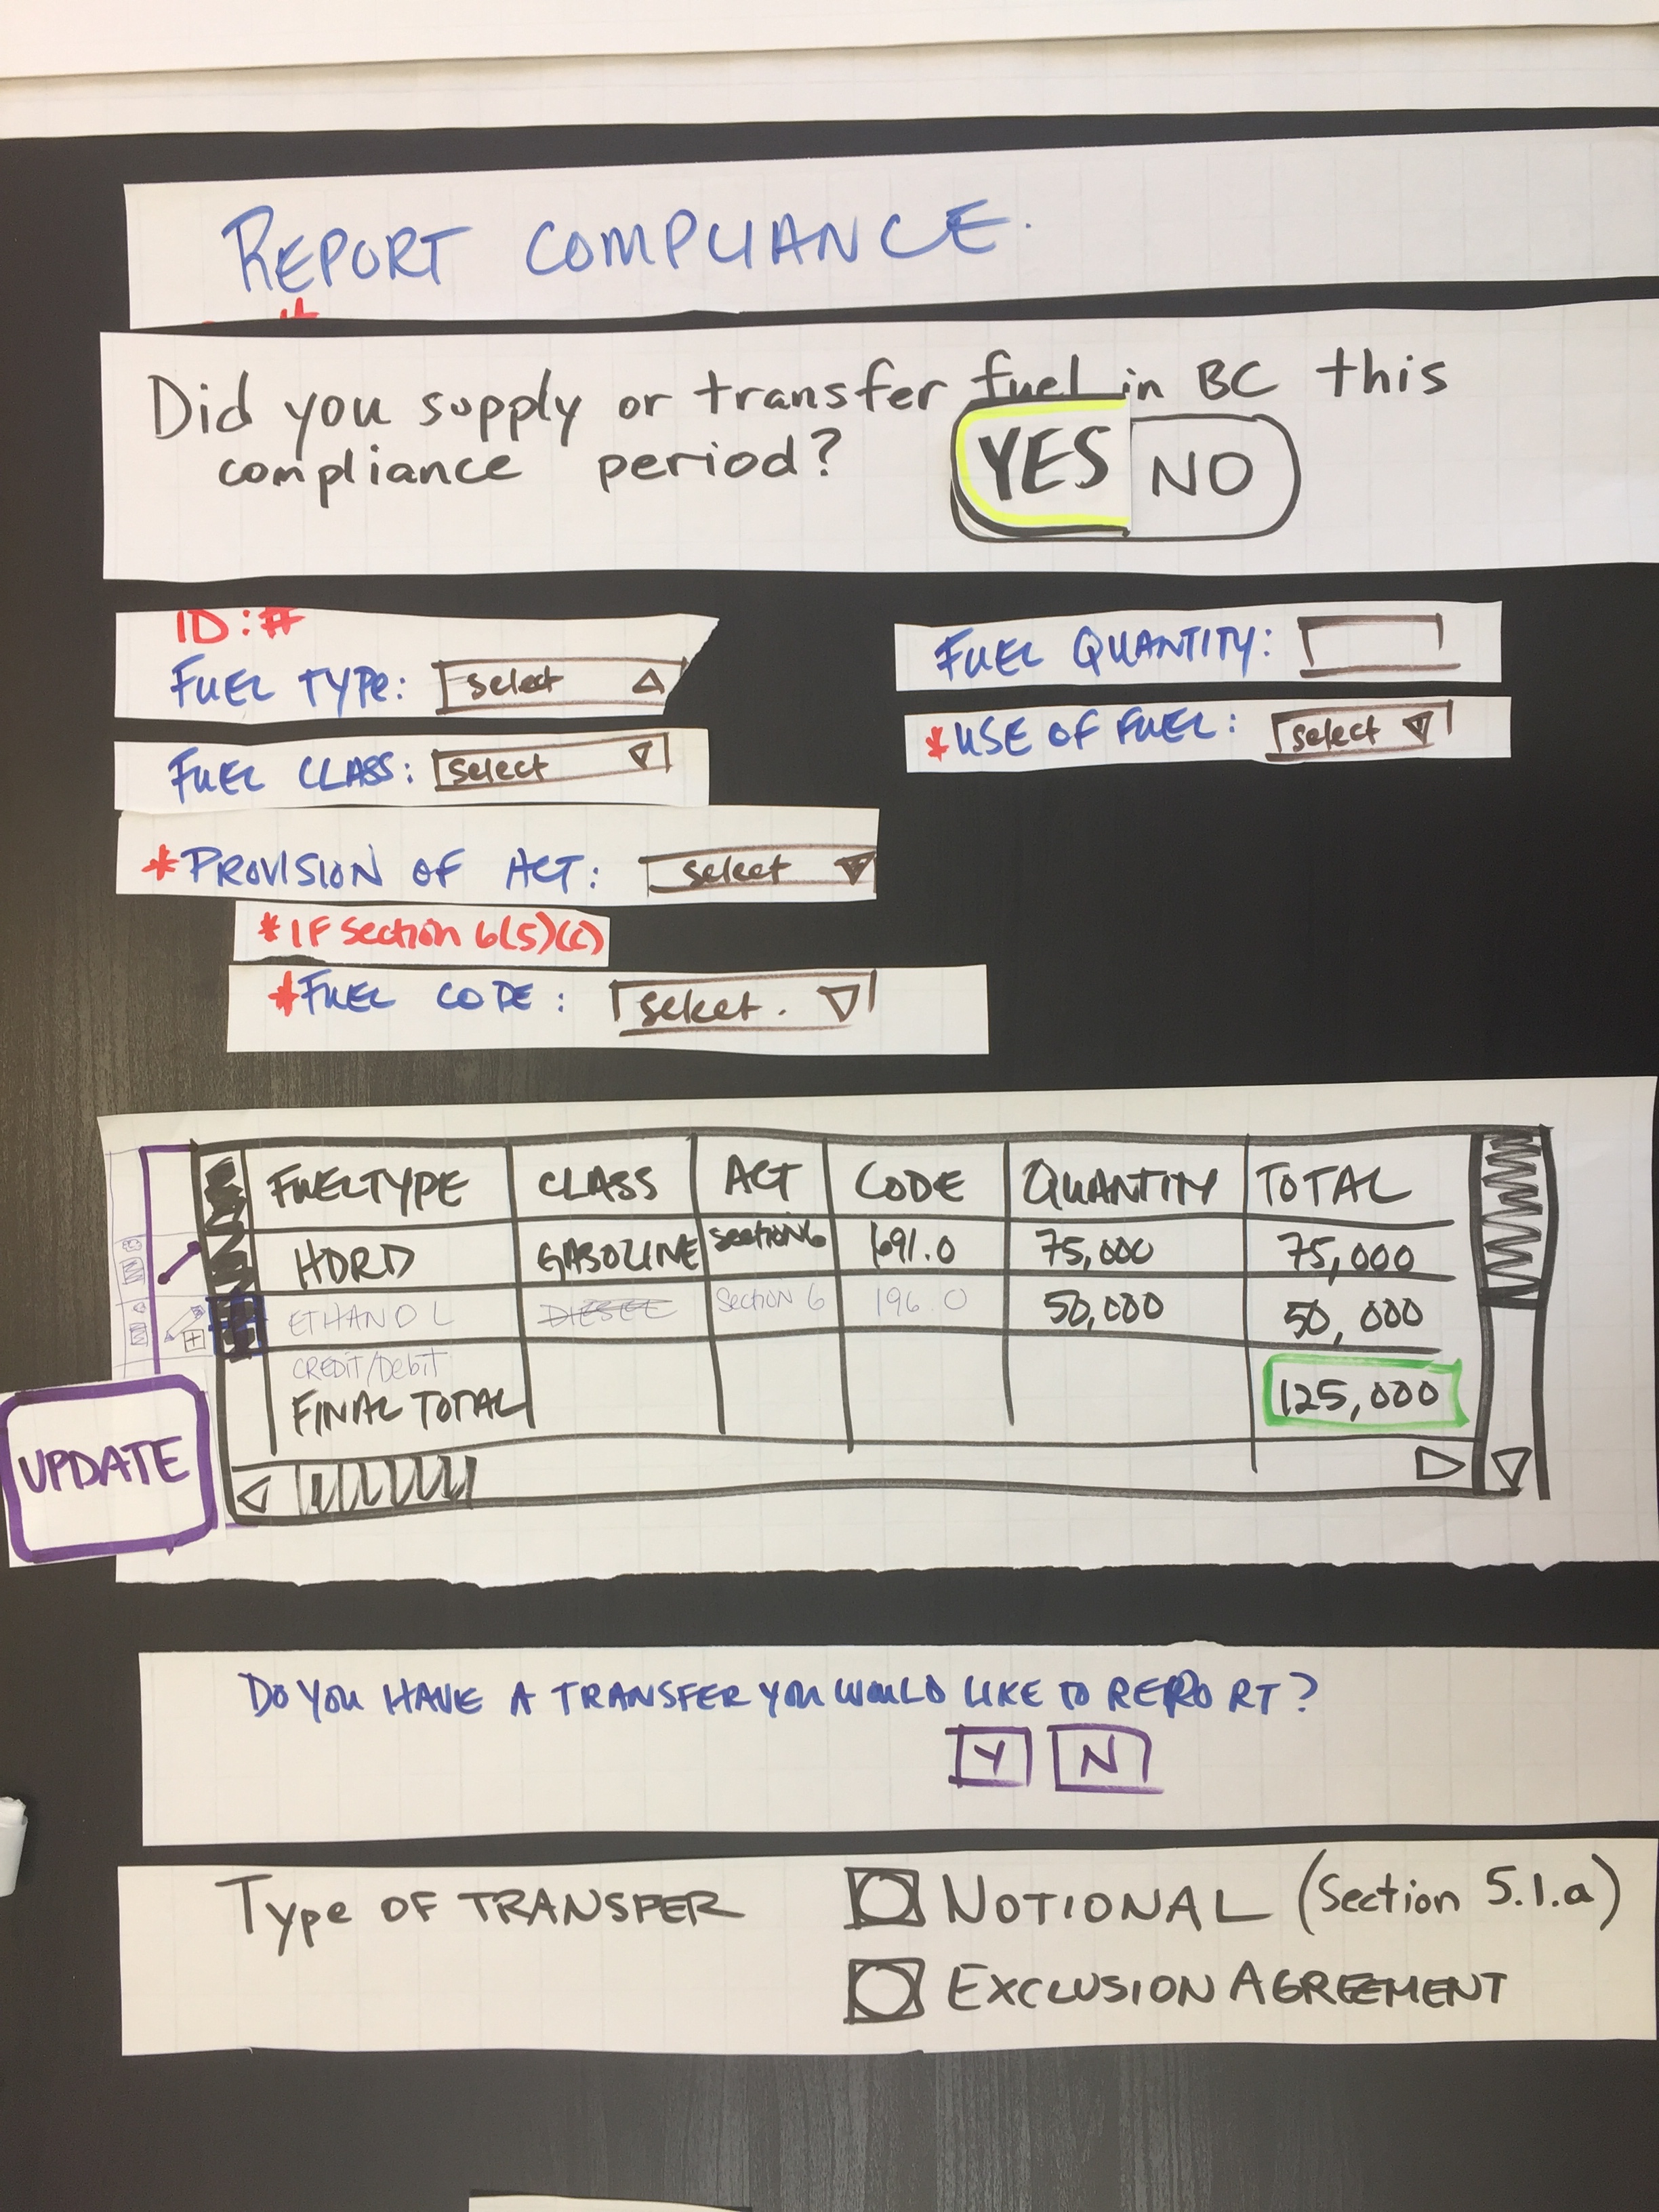 REPORT COMPLIANCE.
Did you supply or transfer fuel in BC this
compliance period? YES NO
ID:#
FUEL TYPE: select
FUEL QUANTITY:
*USE OF FUEL: select
FUEL CLASS: select
*PROVISION OF ACT: select
*IF Section 6(5)(c)
*FUEL CODE: select.
FUELTYPE CLASS ACT CODE QUANTITY TOTAL
HDRD GASOLINE Section 6 691.0 75,000 75,000
ETHANOL DIESEL Section 6 196.0 50,000 50,000
CREDIT/Debit
FINAL TOTAL 125,000
UPDATE
DO YOU HAVE A TRANSFER YOU WOULD LIKE TO REPORT?
Y N
Type OF TRANSFER NOTIONAL (Section 5.1.a)
EXCLUSION AGREEMENT